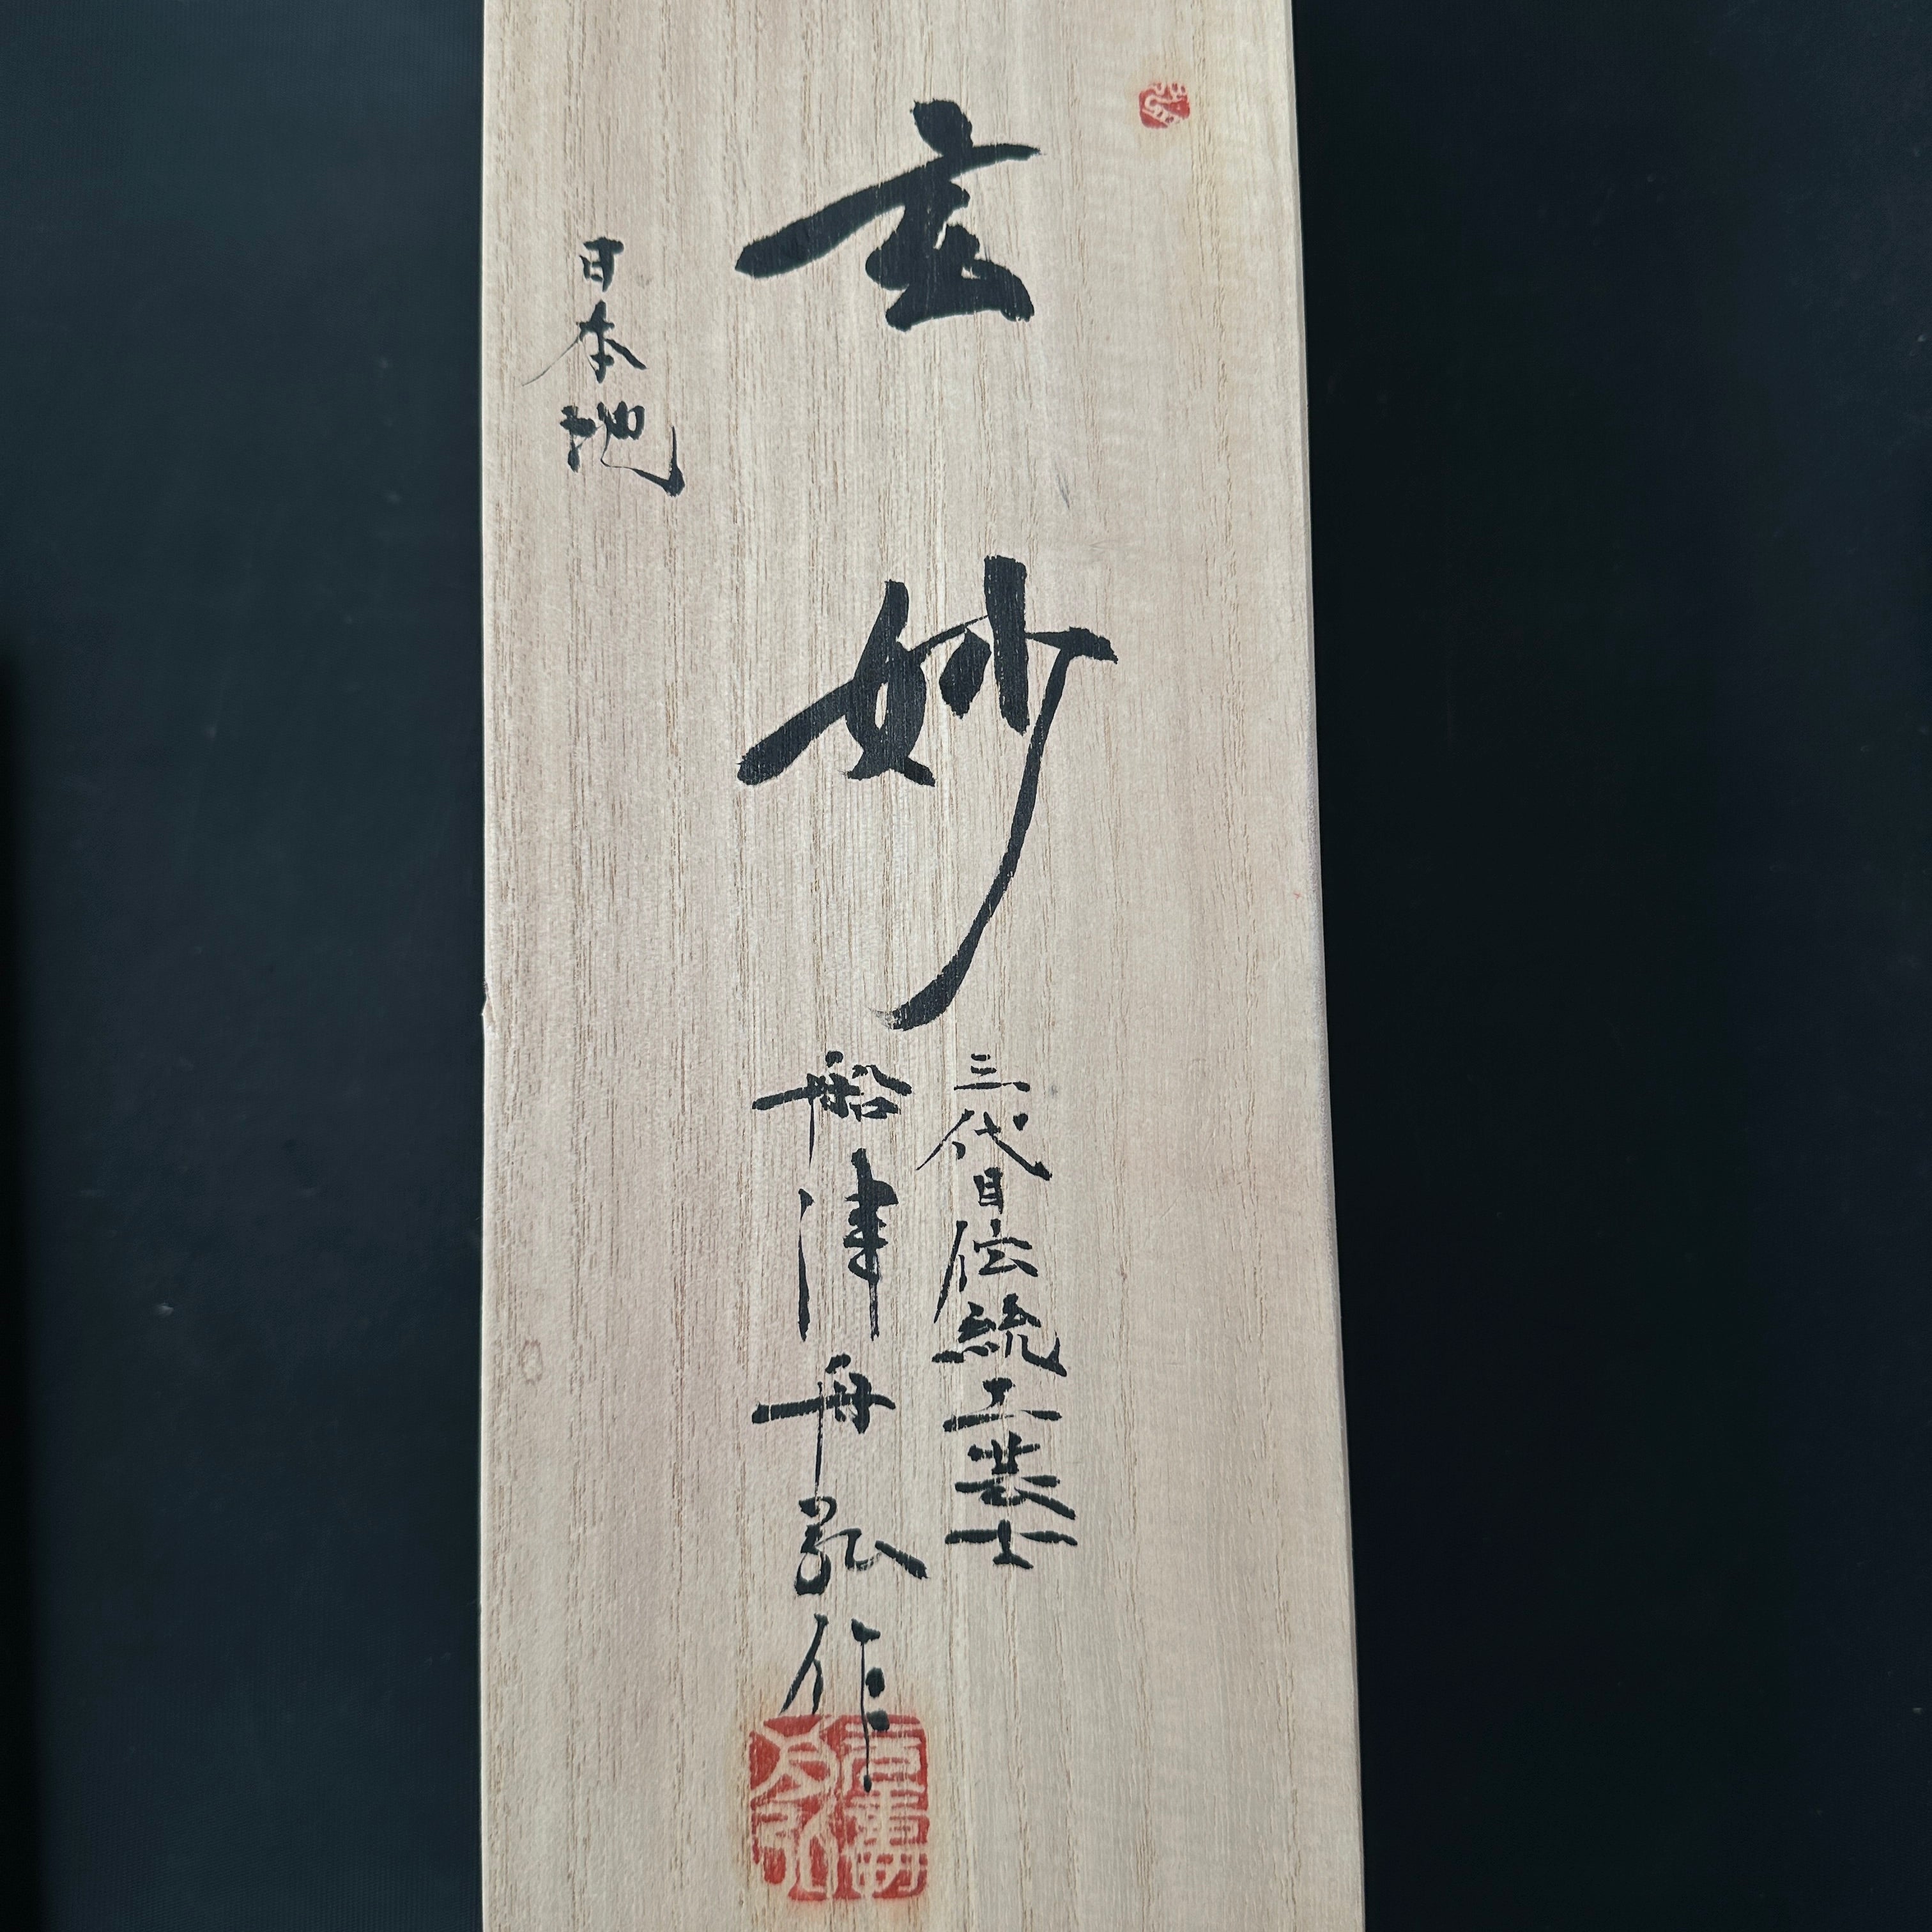 玄妙
三代目伝統工芸士
船津舟弘作
日本地